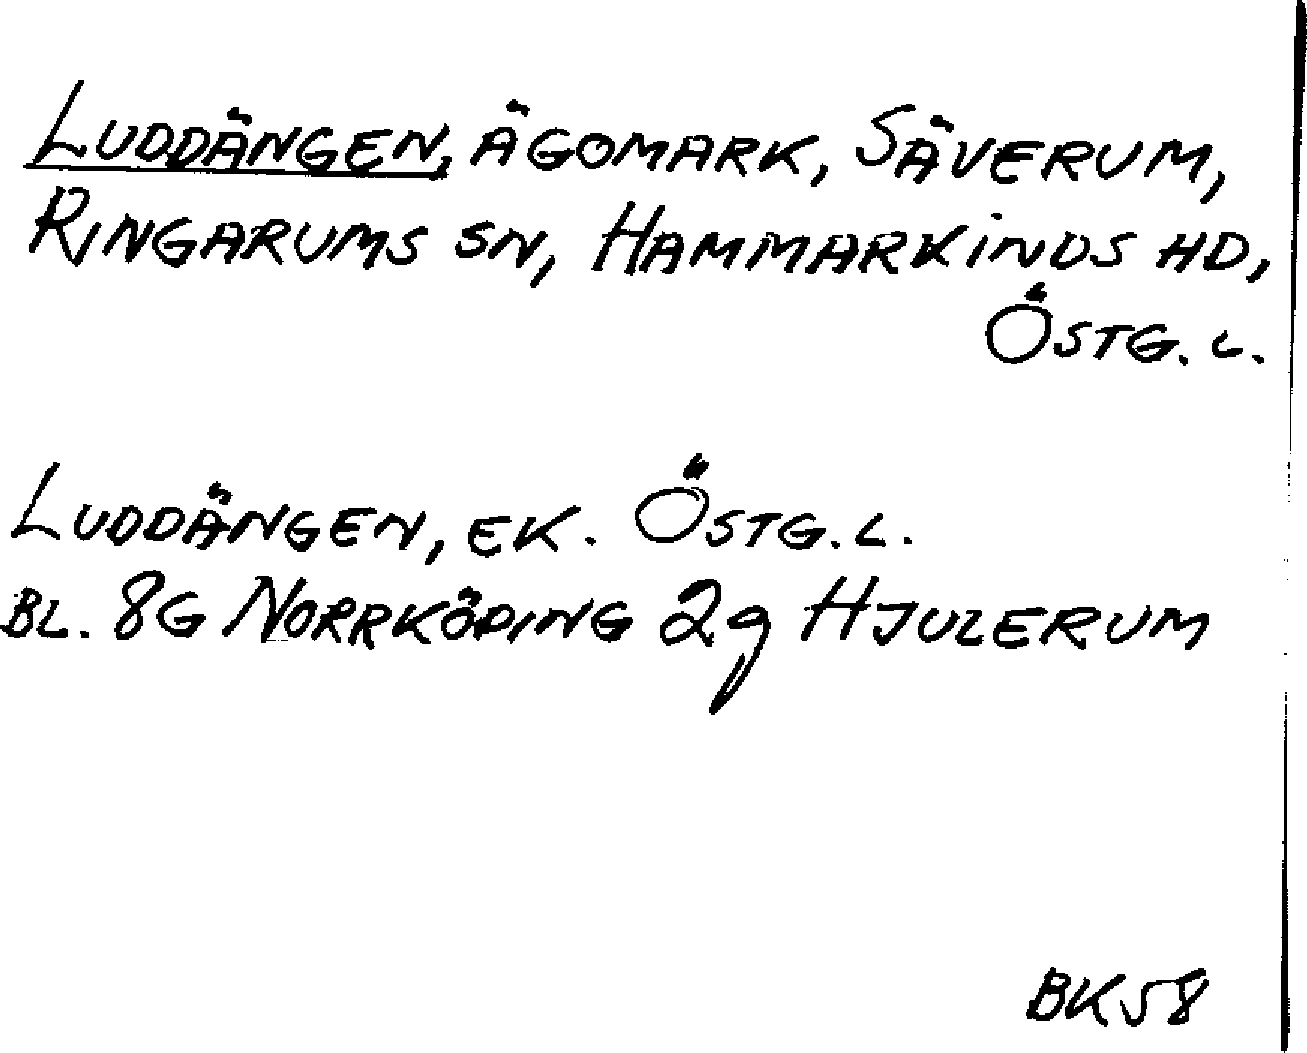 LUDDÄNGEN, ÄGOMARK, SÄVERUM,
RINGARUMS SN, HAMMARKINDS HD,
ÖSTG. L.
LUDDÄNGEN, EK. ÖSTG. L.
BL. 8G NORRKÖPING 2g HJULERUM
BK58